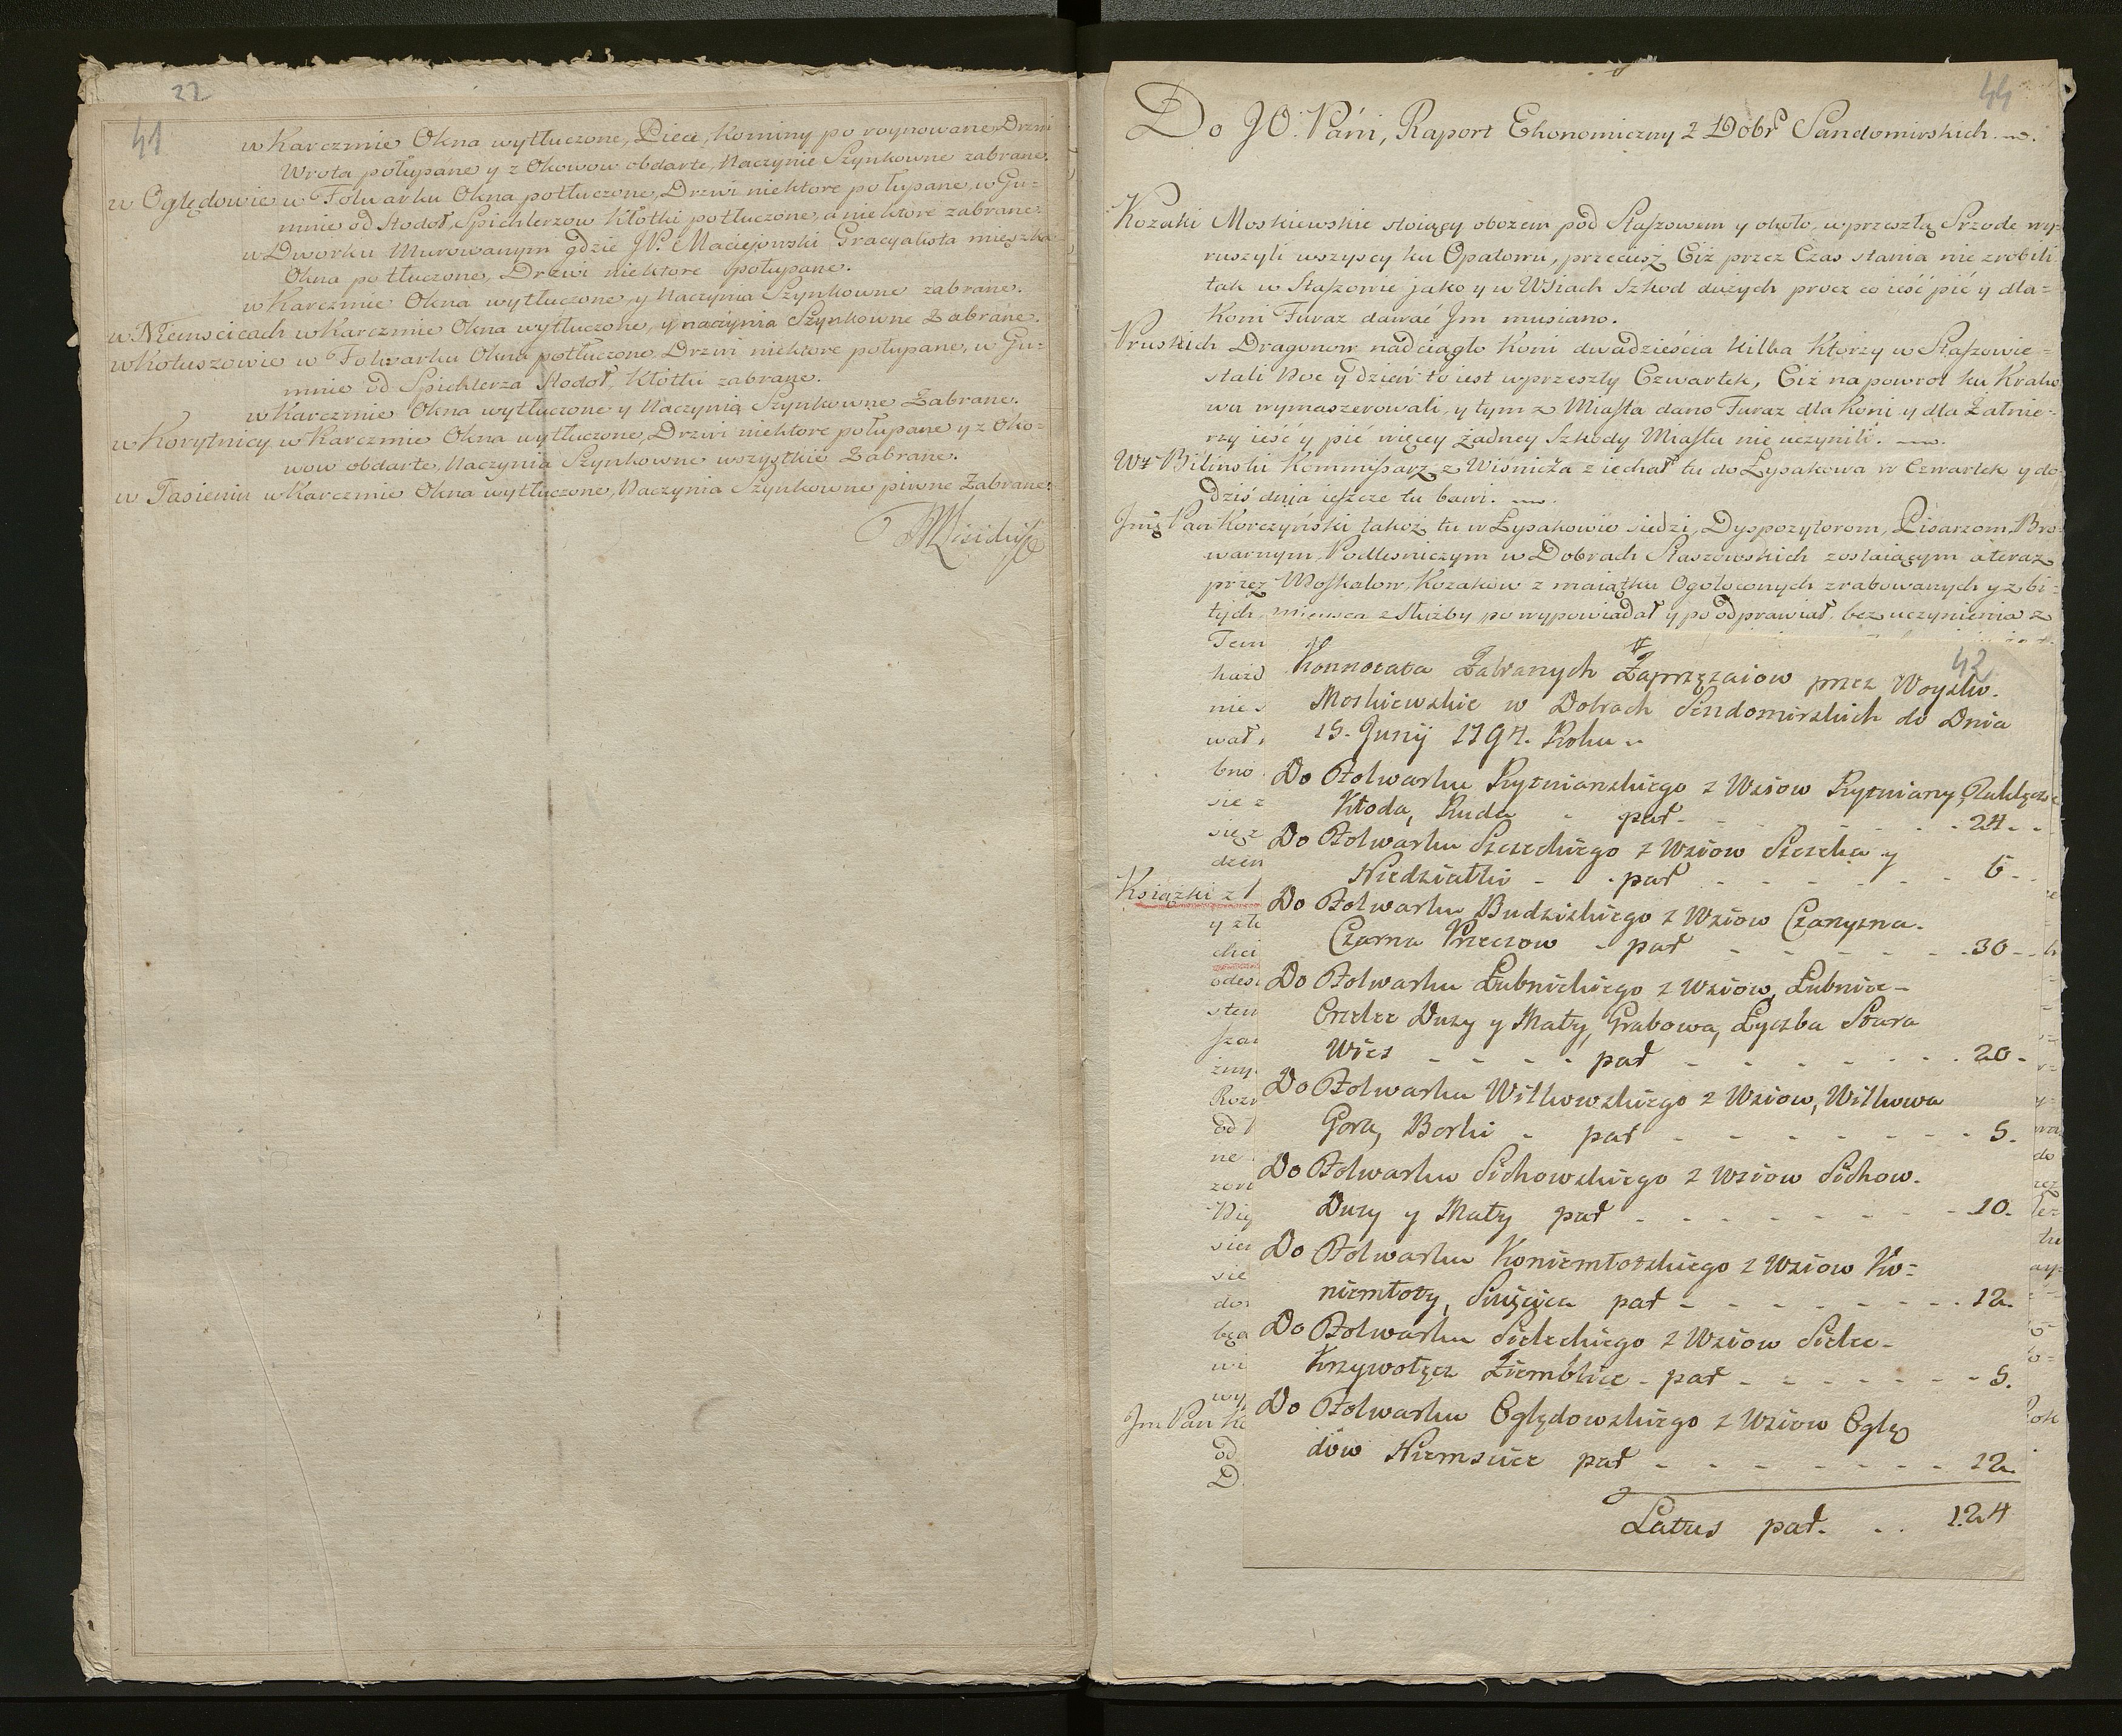 41
w Karczmie Okna wytłuczone, Piece, Kominy po roynowane Drzwi
Wrota połupane y z Okowow obdarte, Naczynie Szynkowne zabrane.
w Oględowie w Folwarku Okna potłuczone, Drzwi niektore połupane, w Gu=
mnie od Stodoł, Spichlerzow Kłotki potłuczone, a niektore zabrane.
w Dworku Murowanym gdzie JP. Maciejowski Gracyalista mieszka
Okna potłuczone, Drzwi niektore połupane.
w Karczmie Okna wytłuczone, y Naczynia Szynkowne zabrane.
w Niemscicach w Karczmie Okna wytłuczone, y naczynia Szynkowne Zabrane.
w Kotuszowie w Folwarku Okna potłuczone, Drzwi niektore połupane, w Gu=
mnie od Spichlerza Stodoł, Kłotki zabrane.
w Karczmie Okna wytłuczone y Naczynia Szynkowne Zabrane.
w Korytnicy w Karczmie Okna wytłuczone, Drzwi niektore połupane y z Oko=
wow obdarte, Naczynia Szynkowne wszystkie Zabrane.
w Jasieniu w Karczmie Okna wytłuczone, Naczynia Szynkowne piwne Zabrane.
44
Do JO: Pani, Raport Ekonomiczny z Dobr Sandomirskich.
Kozaki Moskiewskie stoiący obozem pod Staszowem y około, w przeszłą Srzode wy=
ruszyli wszyscy ku Opatowu, przecież Ciż przez Czas stania nie zrobili
tak w Staszowie jako y w Wsiach Szkod dużych procz co ieść pić y dla=
Koni Furaz dawać Jm musiano.
Pruskich Dragonow nadciągło Koni dwadzieścia kilka Ktorzy w Staszowie=
stali Noc y dzień to iest w przeszły Czwartek, Ciż na powrot ku Krako
wu wymaszerowali, y tym z Miasta dano Furaz dla Koni y dla Zołnie=
rzy ieść y pić więcey żadney Szkody Miastu nie uczynili.
Biliński Kommissarz z Wiśnicza ziechał tu do Łysakowa w Czwartek y do
dziś dnia ieszcze tu bawi.
Pan Korczyński takoż tu w Łysakowie siedzi, Dyspozytorom, Pisarzom Bro=
warnym, Podlesniczym w Dobrach Staszowskich zostaiącym a teraz
przez Moskalow, Kozakow z maiątku Ogołoconych zrabowanych y z bi=
tych, miensca z Służby powypowiadał y poodprawiał, bez uczynienia z
42
Konnotata Zabranych Zaprzęzaiow przez Woysko.
Moskiewskie w Dobrach Sendomirskich do Dnia
15. Junij 1794. Roku
Do Folwarku Rytwianskiego z Wsiow Rytwiany,
Kłoda, Ruda - par - 24
Do Folwarku Szczeckiego z Wsiow Szczeka y
Niedziałki - par - 6
Do Folwarku Budziskiego z Wsiow Czarzyzna.
Czarna Przeczow - par - 30
Do Folwarku Łubnickiego z Wsiow, Łubnice -
Orzelec Duzy y Mały, Grabowa, Łyczba Stara
Wies - par - 20.
Do Folwarku Wilkowskiego z Wsiow, Wilkowa
Gora, Borki - par - 5.
Do Folwarku Sichowskiego z Wsiow Sichow.
Duzy y Mały par - 10.
Do Folwarku Koniemłotskiego z Wsiow Ko=
niemłoty, Snięcica par - 12.
Do Folwarku Sieleckiego z Wsiow Sielce -
Krzywołęcz Ziemblice - par - 5.
Do Folwarku Oględowskiego z Wsiow Oglę
dow Niemscice par - 12.
Latus par. 124
Książki z
Jm Pan